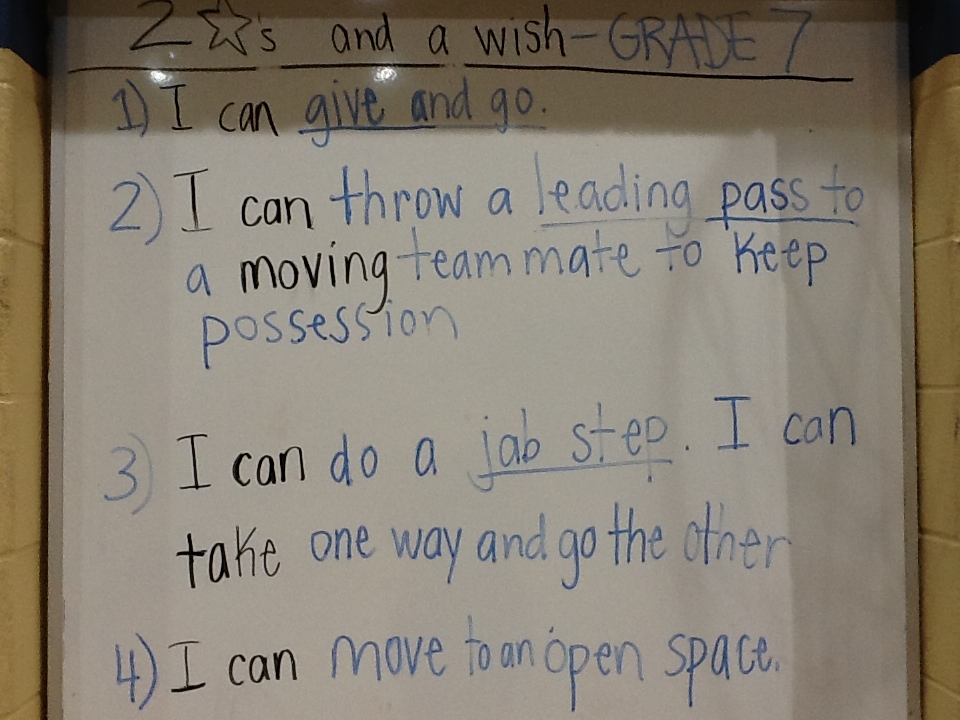 2 ☆'s and a wish - GRADE 7
1) I can give and go.
2) I can throw a leading pass to
a moving teammate to keep
possession
3) I can do a jab step. I can
take one way and go the other
4) I can move to an open space.